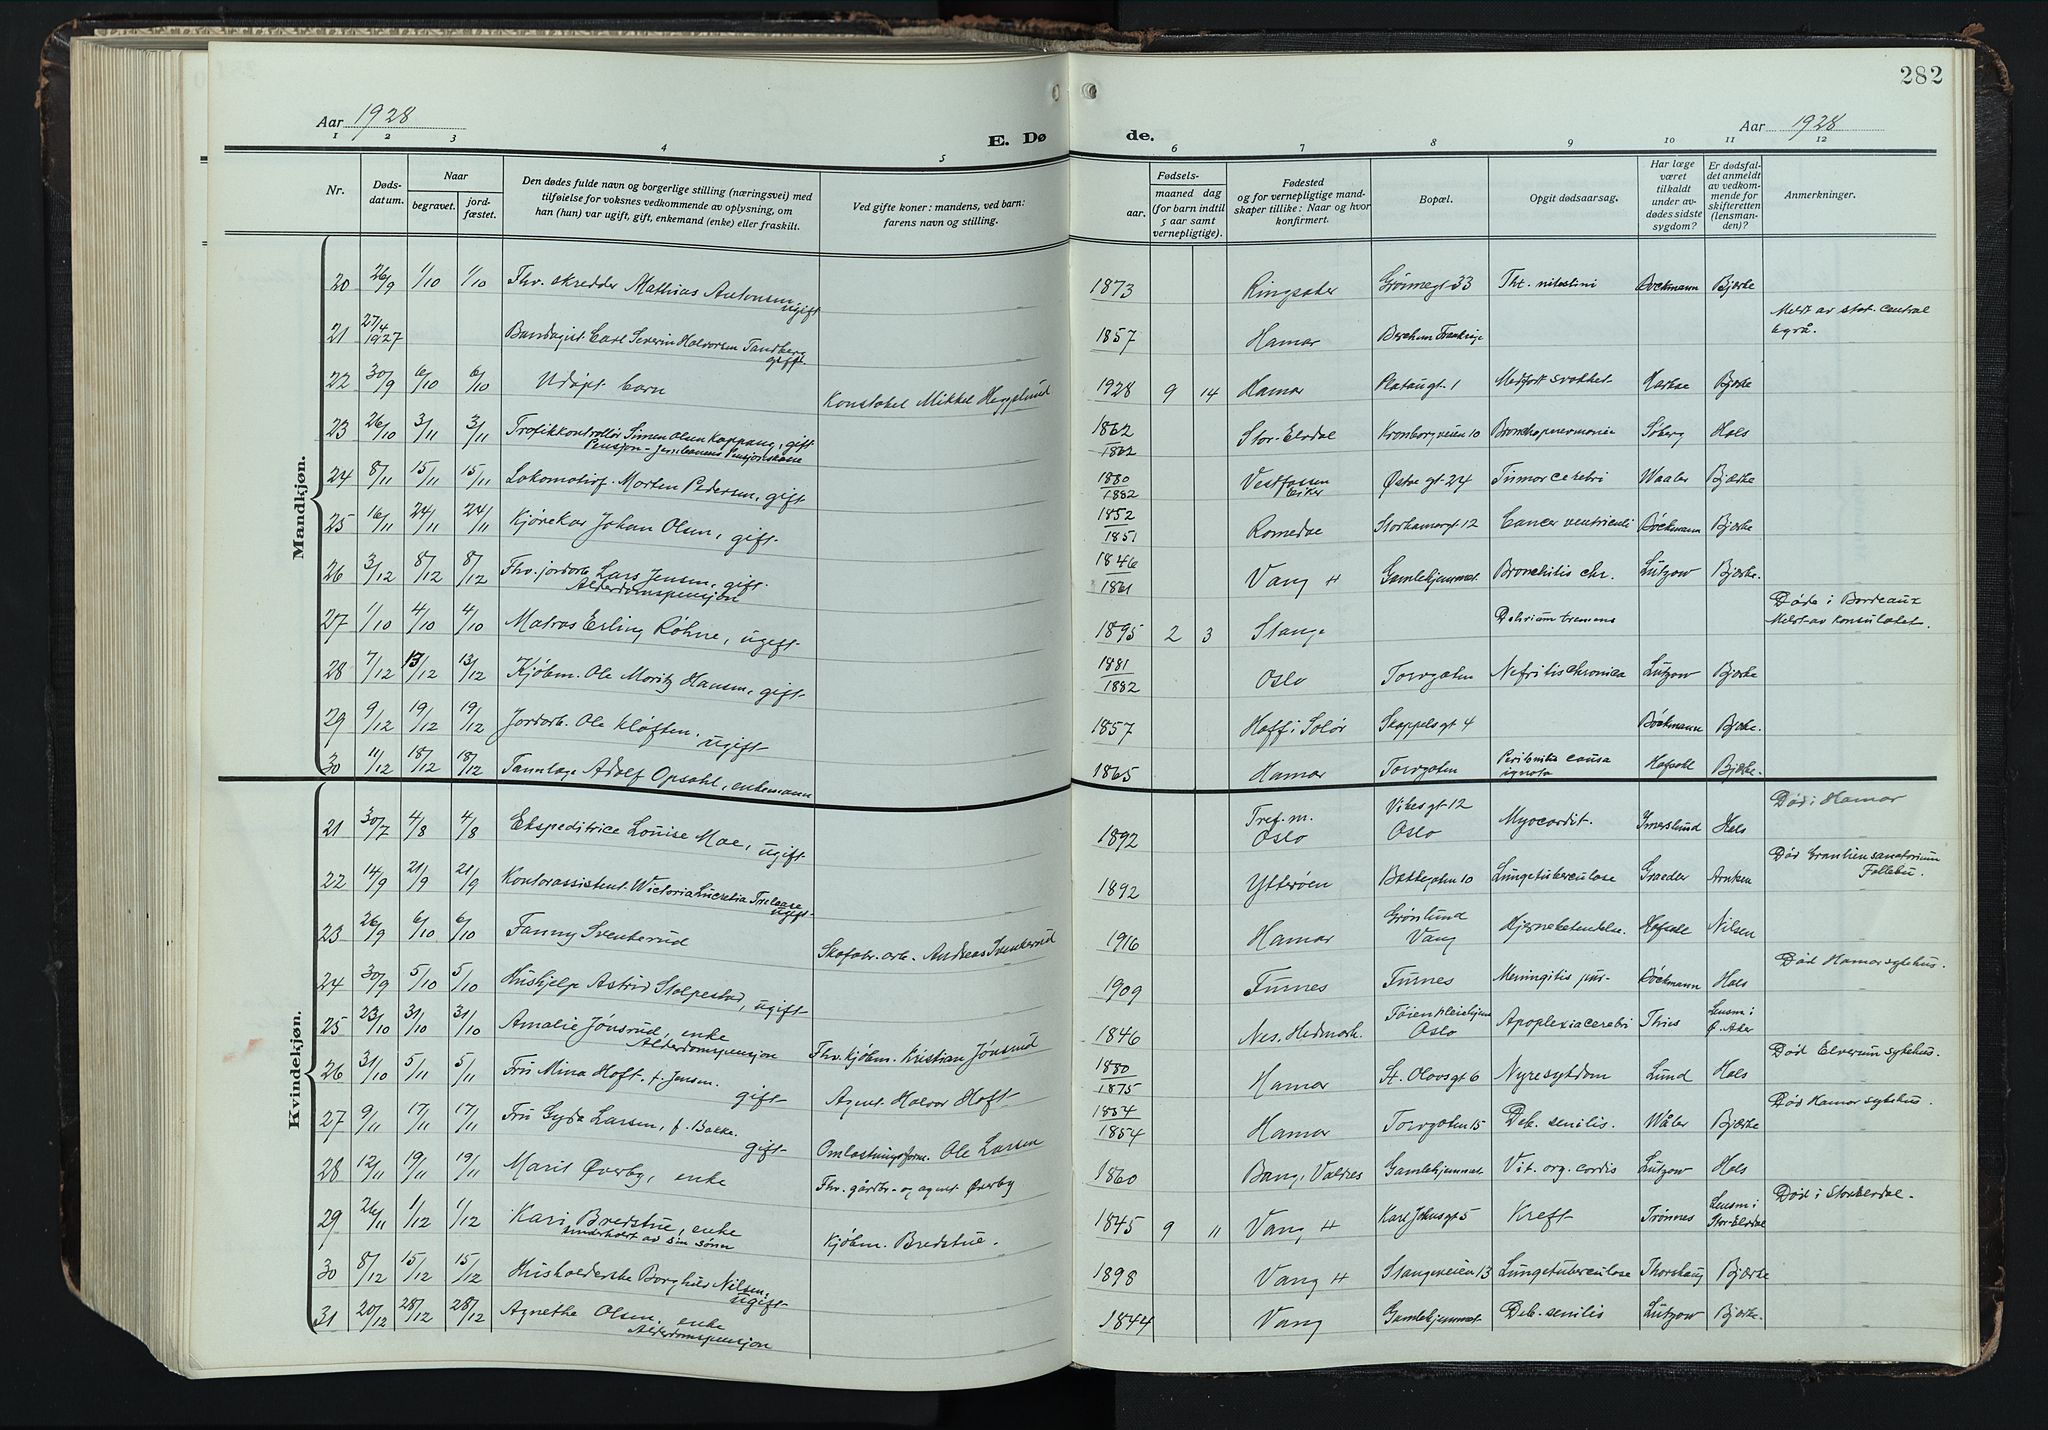 282
Aar 1928
E. Dø
de.
Aar 1928
1 2 3 4 5 6 7 8 9 10 11 12
Nr.
Døds-
datum.
Naar
begravet.
jord-
fæstet.
Den dødes fulde navn og borgerlige stilling (næringsvei) med
tilføielse for voksnes vedkommende av oplysning, om
han (hun) var ugift, gift, enkemand (enke) eller fraskilt.
Ved gifte koner: mandens, ved barn:
farens navn og stilling.
Fødsels-
aar.
maaned dag
(for barn indtil
5 aar samt
vernepligtige).
Fødested
og for vernepligtige mand-
skaper tillike: Naar og hvor
konfirmert.
Bopæl.
Opgit dødsaarsag.
Har læge
været
tilkaldt
under av-
dødes sidste
sygdom?
Er dødsfal-
det anmeldt
av vedkom-
mende for
skifteretten
(lensman-
den)?
Anmerkninger.
Mandkjøn.
20 26/9 1/10 1/10 Fhv. skredder Mathias Antonsen ugift 1873 Ringsaker Grønnegt 33 Bockmann Bjærke
21 27/4 1927 Bandagist Carl Severin Halvorsen Tandberg gift 1857 Hamar Berchem Frankrige Meldt av stat. central
byrå.
22 30/9 6/10 6/10 Udøpt barn Konstabel Mikkel Heggelund 1928 9 14 Hamar Platougt. 1 Medfødt svakhet Harboe Bjærke
23 26/10 3/11 3/11 Trafikkontrollør Simen Olsen Koppang, gift 1862 Stor-Elvdal Kronborgveien 10 Bronchopneumonie Søberg Hals
Pensjon - Jernbanens Pensjonskasse 1862
24 8/11 15/11 15/11 Lokomotivf. Morten Pedersen, gift 1880 1882 Vestfossen Eiker Østre gt 24 Tumor cerebri Waaler Bjærke
25 16/11 24/11 24/11 Kjørekar Johan Olsen, gift. 1852 1851 Romedal Storhamargt 12 Cancer ventriculi Böckmann Bjærke
26 3/12 8/12 8/12 Fhv. jordarb. Lars Jensen, gift. 1846 1861 Vang H Gamlehjemmet Bronchitis chr. Lützow Bjærke.
Alderdomspensjon
27 1/10 4/10 4/10 Matros Erling Røhne, ugift. 1895 2 3 Stange Delirium tremens Døde i Bordeaux
Meldt av konsulatet.
28 7/12 13/12 13/12 Kjøbm. Ole Moritz Hansen, gift 1881 1882 Oslo Torvgaten Nefritis chronica Lützow Bjærke
29 9/12 19/12 19/12 Jordarb. Ole Kløften. ugift 1857 Hoff i Solør Skappelsgt 4 Böckmann Bjærke.
30 11/12 18/12 18/12 Tannlæge Adolf Opsahl, enkemann 1865 Hamar Torvgaten Peritonitis causa
ignota Hafsahl Bjærke.
Kvindekjøn.
21 30/7 4/8 4/8 Ekspeditrice Louise Moe, ugift 1892 Tref. m. Oslo Vibesgt 12 Oslo Myocardit. Imerslund Hals Død i Hamar
22 14/9 21/9 21/9 Kontorassistent Wictoria Lucretia Trelease ugift 1892 Ytterøen Bakkegaten 10 Lungetuberculose Graeder Arnken Død Granheim sanatorium
Follebu.
23 26/9 6/10 6/10 Fanny Svenkerud Skofabr. arb. Andreas Svenkerud 1916 Hamar Grønlund Vang Hjernebetendelse. Hafsahl Nilsen
24 30/9 5/10 5/10 Hushjelp Astrid Stolpestad, ugift 1909 Furnes Furnes Meningitis pur- Böckmann Hals Død Hamar sykehus.
25 23/10 31/10 31/10 Amalie Jønsrud, enke Fhv. kjøbm. Kristian Jønsrud 1846 Nes. Hedmark. Tøien Pleiehjem Oslo Apoplexia cerebri Thies Lensm i
Ø. Aker
Alderdomspensjon
26 31/10 5/11 5/11 Fru Mina Hoft. f. Jensen. gift Agent. Halvor Hoft 1880 1875 Hamar St. Olavsgt 6 Nyresykdom Lund Hals Død Elverum sykehus.
27 9/11 17/11 17/11 Fru Gyda Larsen, f. Bakke. gift Omlastningsform. Ole Larsen 1854 1854 Hamar Torvgaten 15 Deb. senilis. Wåler Bjærke Død Hamar sykehus.
28 12/11 19/11 19/11 Marit Øverby, enke Fhv. gårdbr. og agent Øverby 1860 Bang, Valdres Gamlehjemmet Vit. org. cordis Lützow Hals
29 26/11 1/12 1/12 Kari Bredstue, enke Kjøbm. Bredstue. 1845 9 11 Vang H Karl Johusgt 5 Kreft Trønnes Lensm i
Stor-Elvdal Død i Storelvdal.
underholdt av sin sønn
30 8/12 15/12 15/12 Husholderske Borghild Nilsen, ugift 1898 Vang H Stangeveien 13 Lungetuberculose Thorshaug Bjærke
31 20/12 28/12 28/12 Agnethe Olsen, enke 1844 Vang Gamlehjemmet Deb. senilis Lützow Bjærke.
Alderdomspensjon